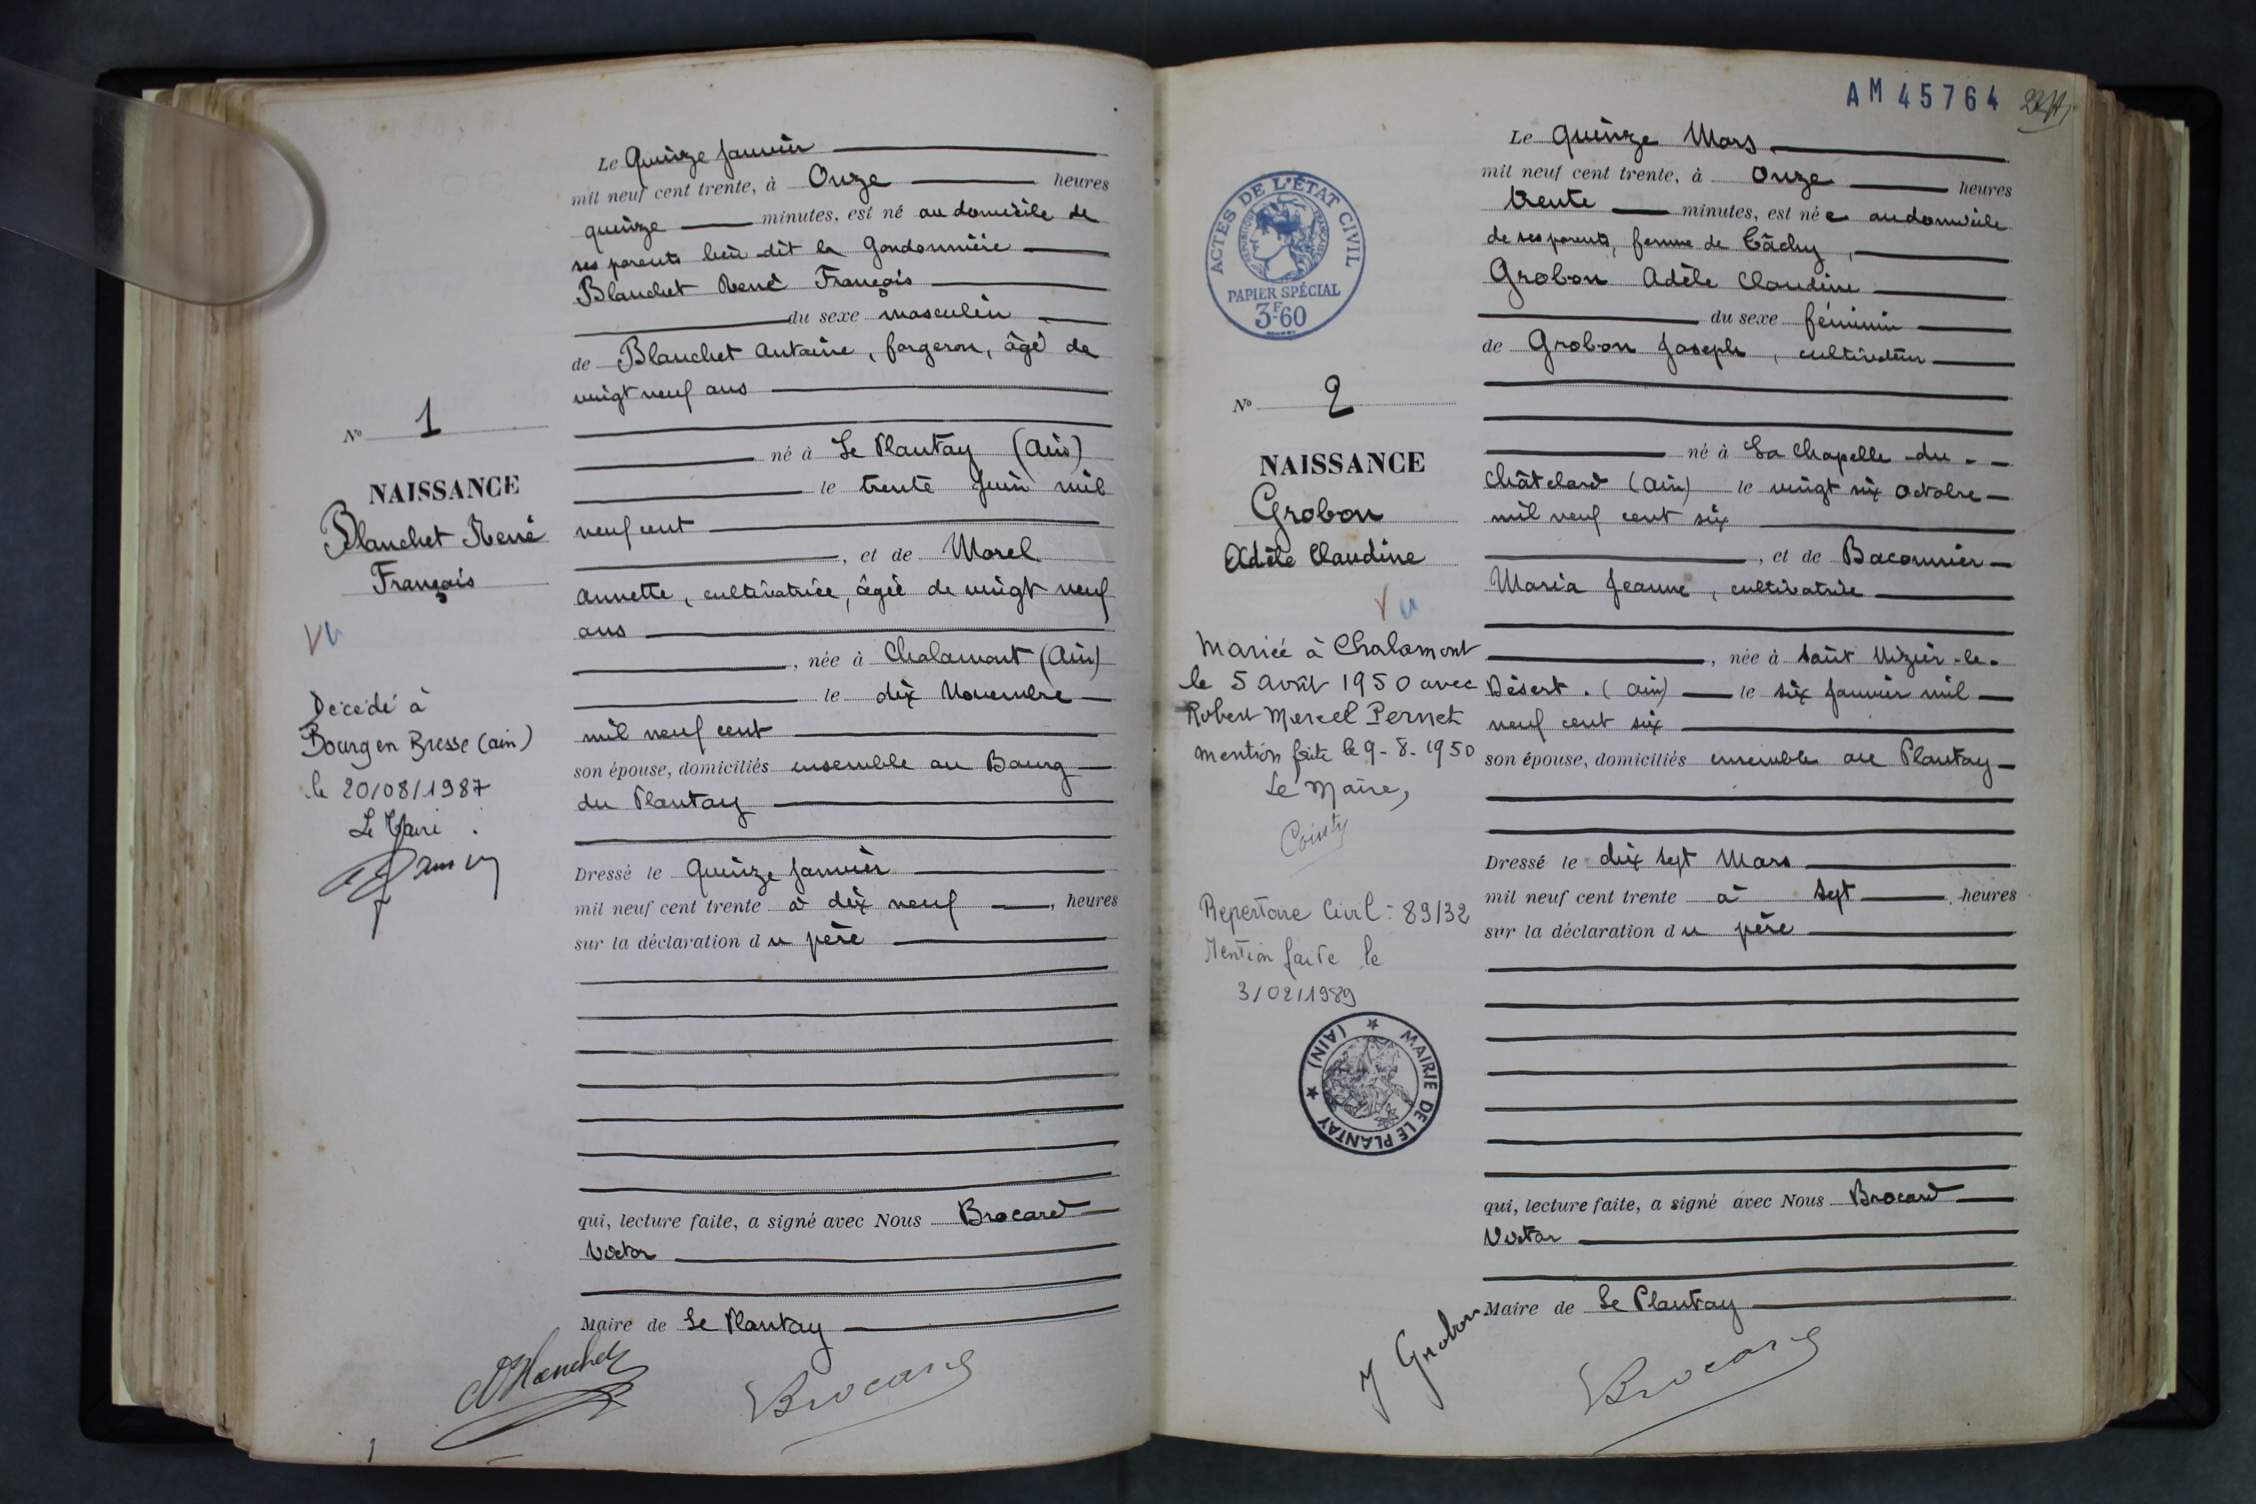 Le Quinze Janvier
mil neuf cent trente, à Onze heures
quinze minutes, est né au domicile de
ses parents lieu dit la Gondonnière
Blanchet René François
du sexe masculin
de Blanchet Antoine, forgeron, âgé de
vingt neuf ans
né à Le Plantay (Ain)
le trente Juin mil
neuf cent
, et de Morel
Annette, cultivatrice, âgée de vingt neuf
ans
, née à Chalamont (Ain)
le dix Novembre
mil neuf cent
son épouse, domiciliés ensemble au Bourg
du Plantay
Dressé le Quinze Janvier
mil neuf cent trente à dix neuf, heures
sur la déclaration du père
qui, lecture faite, a signé avec Nous Brocard
Victor
Maire de Le Plantay
Blanchet
Brocard
1
N° 1
NAISSANCE
Blanchet René
François
Vu
Décédé à
Bourg en Bresse (Ain)
le 20/08/1987
Le Maire
AM 45764
Le quinze Mars
mil neuf cent trente, à Onze heures
trente minutes, est née au domicile
de ses parents, ferme de Câchy,
Grobon Adèle Claudine
du sexe féminin
de Grobon Joseph, cultivateur
né à La Chapelle-du-
Châtelard (Ain) le vingt six Octobre
mil neuf cent six
, et de Baconnier
Maria Jeanne, cultivatrice
, née à Saint Nizier-le-
Désert. (Ain) le six Janvier mil
neuf cent six
son épouse, domiciliés ensemble au Plantay
Dressé le dix sept Mars
mil neuf cent trente à sept heures
sur la déclaration du père
qui, lecture faite, a signé avec Nous Brocard
Victor
Maire de Le Plantay
J Grobon
Brocard
ACTES DE L'ÉTAT CIVIL
RÉPUBLIQUE FRANÇAISE
PAPIER SPÉCIAL
3F60
N° 2
NAISSANCE
Grobon
Adèle Claudine
Vu
Mariée à Chalamont
le 5 Août 1950 avec
Robert Marcel Pernet
mention faite le 9-8-1950
Le Maire,
Repertoire Civil : 89/32
Mention faite le
3/02/1989
MAIRIE DE LE PLANTAY (AIN)